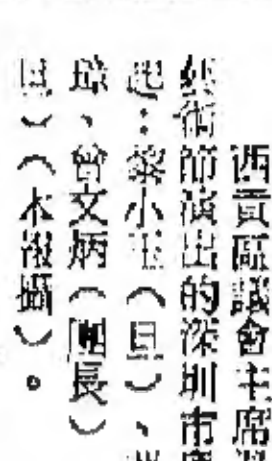 西貢區議會主席
藝術節演出的深圳市
起：黎小玉（旦）、
璋、曾文炳（團長）
旦）（本報攝）。